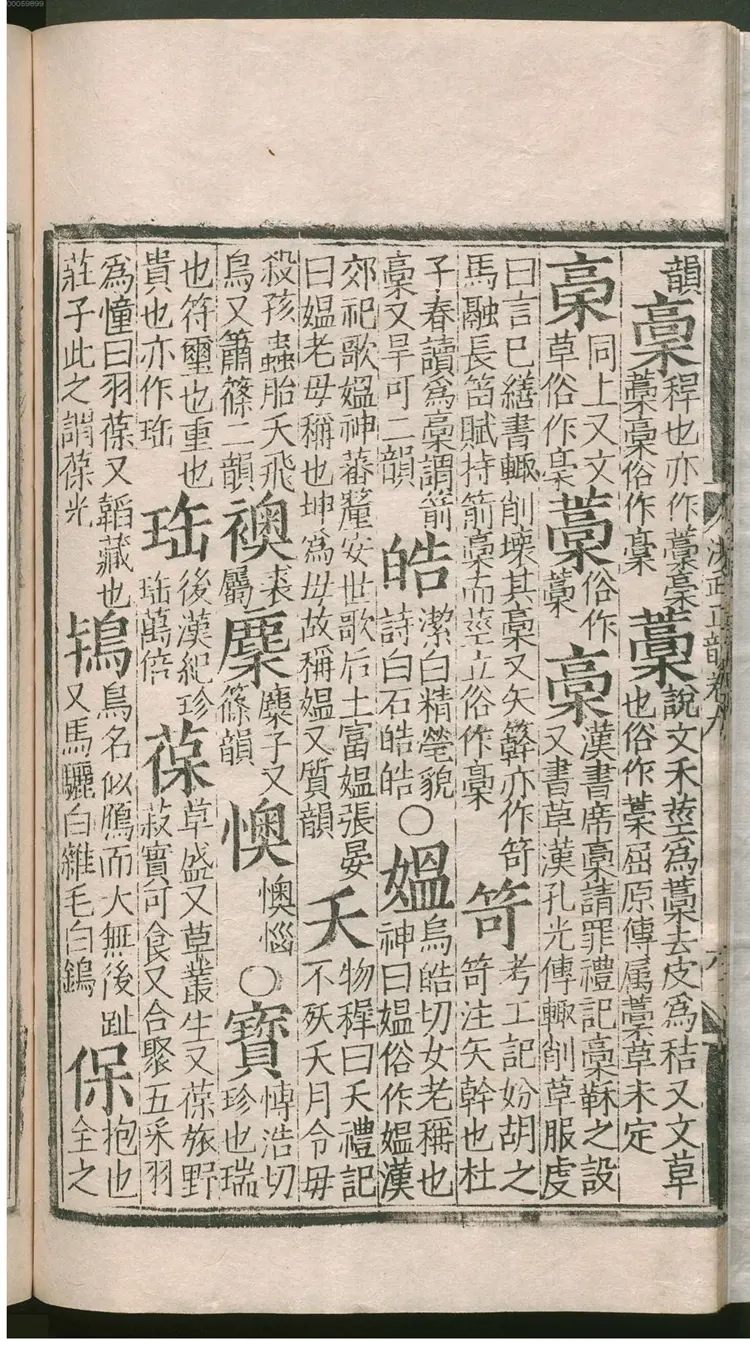 韻稾稈也亦作藳稾藁槀俗作稾藁說文禾莖為藁去皮為秸又文草也俗作藁屈原傳属藁草未定
稾同上又文草俗作稾藁俗作藳稾漢書席稾請罪禮記稾鞂之設又書草漢孔光傳輙削草服虔
曰言已繕書輙削壞其稾又矢簳亦作笴馬融長笛賦持箭稾而莖立俗作槀笴考工記妢胡之笴注矢幹也杜
子春讀為稾謂箭稾又旱可二韻皓潔白精瑩貌詩白石皓皓○媼烏皓切女老稱也神曰媼俗作媪漢
郊祀歌媼神蕃釐安世歌后土富媼張晏曰媼老母稱也坤為母故稱媼又質韻夭物穉曰夭禮記不殀夭月令毋
殺孩蟲胎夭飛鳥又簫篠二韻襖袤屬麌麋子又篠韻懊懊惱○寶博浩切珍也瑞
也符璽也重也貴也亦作珤珤後漢紀珍珤萬倍葆草盛又草叢生又葆旅野菽實可食又合聚五采羽
為幢曰羽葆又韜藏也莊子此之謂葆光鴇鳥名似鴈而大無後趾又馬驪白雜毛白鴇保抱也全之